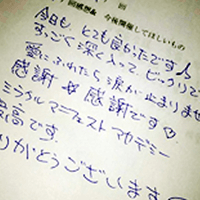 回感想& 今後開催してほしいもの
今日も とても良かったです♪
すっごく深く入って、ビックリで
愛にふれたら涙が止まりませ
感謝 感謝です♡
ミラクルマニフェストアカデミー
最高です。
りがとうございます